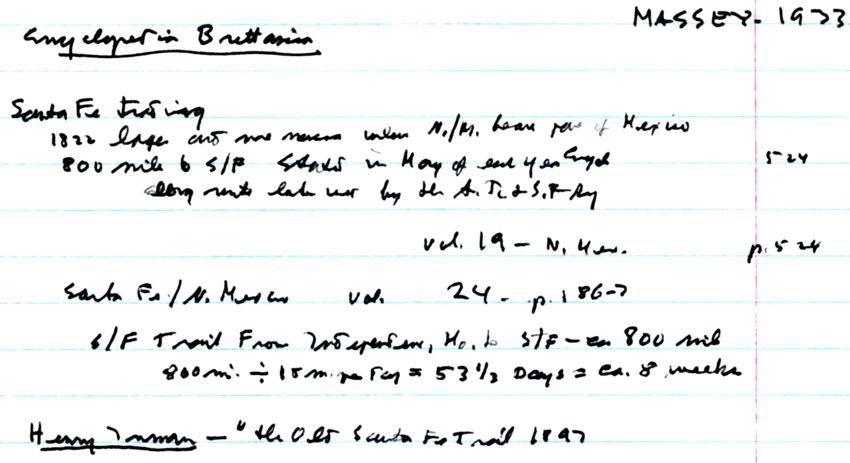 MASSEY - 1973
Encyclopedia Brittanica
Santa Fe trading
1822 larger and more when N./M. became part of Mexico
800 mile to S/F started in May of each year 524
along route later used by the A. T. & S. F Ry
vol. 19 - N. Mex. p. 524
Santa Fe / N. Mexico vol. 24 - p. 186-7
S/F Trail From Independence, Mo. to S/F - ca 800 mil
800 mi. ÷ 15 m. per Day = 53 1/3 Days = ca. 8 weeks
Henry Inman - "the Old Santa Fe Trail 1897